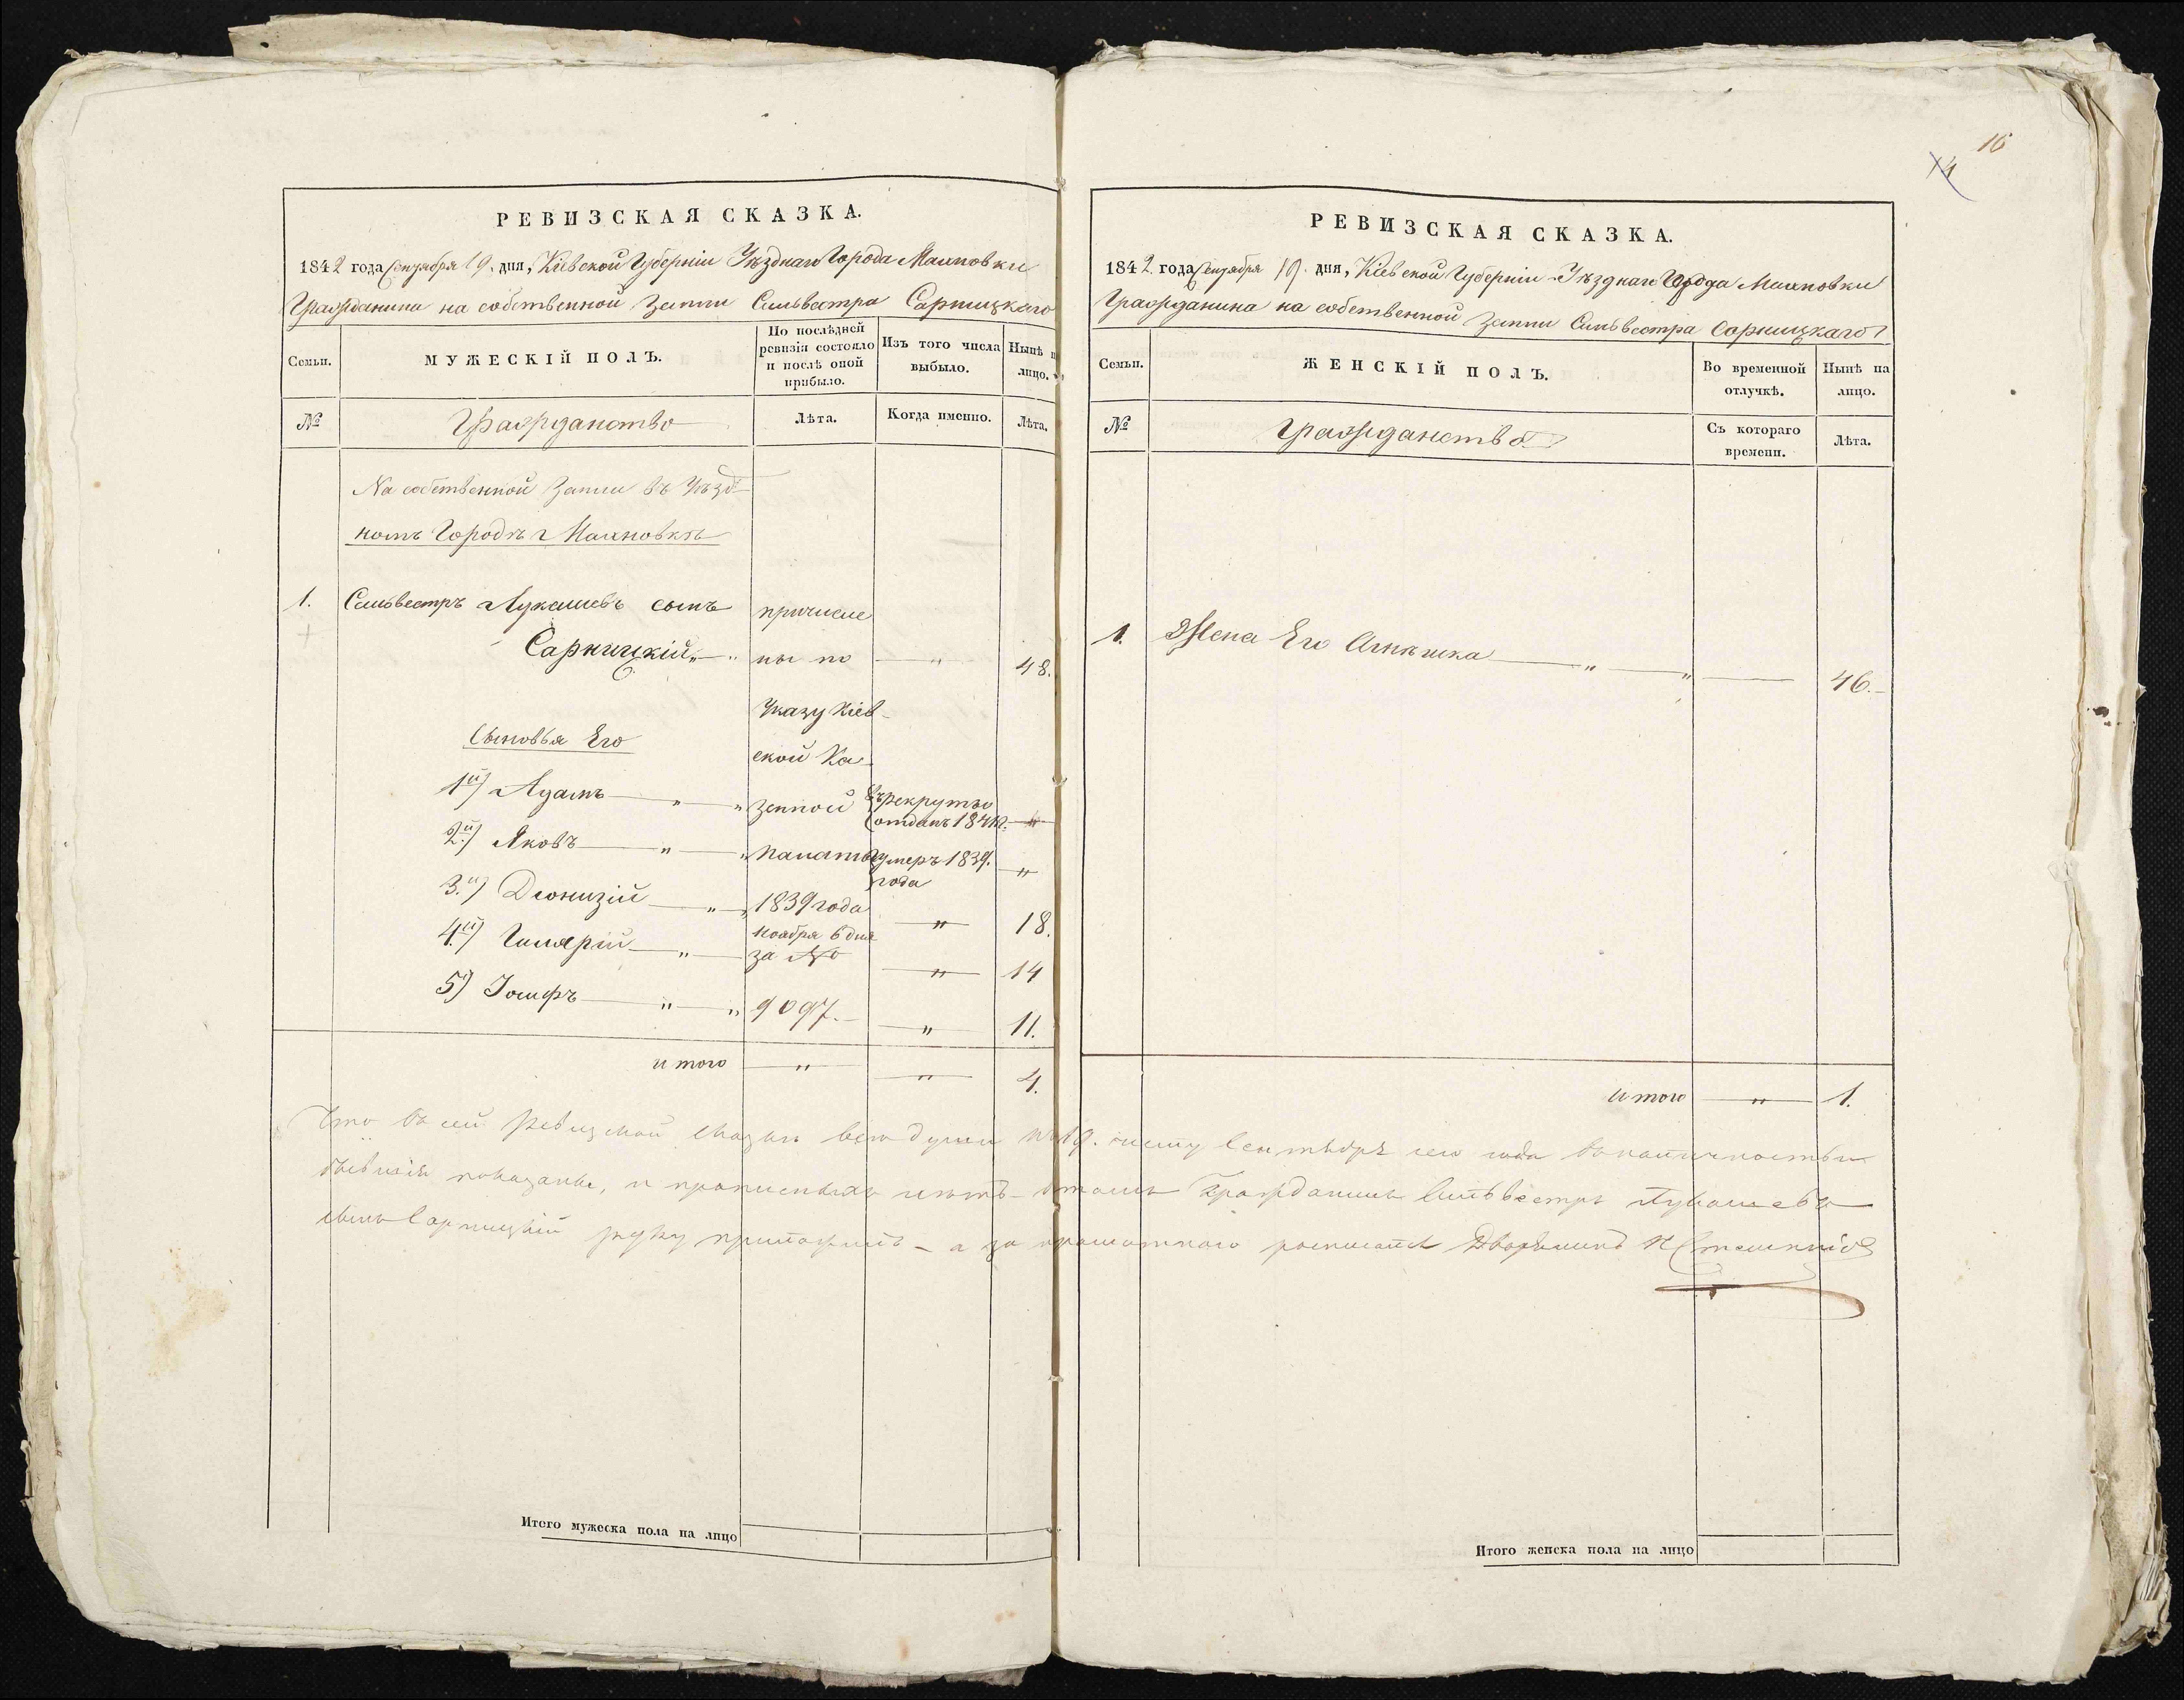 РЕВИЗСКАЯ СКАЗКА.
1842 года Сентября 19. дня, Кіевской Губерніи Уѣзднаго Города Махновки
Гражданина на собственной Земли Сильвестра Сарницкаго
Семьи.
МУЖЕСКІЙ ПОЛЪ.
По послѣдней ревизіи состояло и послѣ оной прибыло.
Изъ того числа выбыло.
Нынѣ на лицо.
№
Гражданство
Лѣта.
Когда именно.
Лѣта.
На собственной Земли въ Уѣзд
номъ Городѣ Махновкѣ
1. Сильвестръ Лукашевъ сынъ причисле
Сарницкій „ ны по „ 48.
Указу Кіев-
Сыновья Его
ской Ка-
1й) Адамъ „ „ зенной въ рекруты
отданъ 184 „
2.й) Яковъ „ „ палаты умеръ 1839. „
года
3.й) Дионизій „ „ 1839 года „ 18.
ноября 6 дня
4.й) Гилярій „ за № „ 14
5) Іосифъ „ „ 9097.- „ 11.
итого „ „ 4.
Итого мужеска пола на лицо
16
14
РЕВИЗСКАЯ СКАЗКА.
1842. года Сентября 19. дня, Кіевской Губерніи Уѣзднаго Города Махновки
Гражданина на собственной Земли Сильвестра Сарницкаго
Семьи.
ЖЕНСКІЙ ПОЛЪ.
Во временной отлучкѣ.
Нынѣ на лицо.
№
Гражданство
Съ котораго времени.
Лѣта.
1. Жена Его Агнѣшка „ „ 46.-
итого „ 1.
Что въ сей Ревизской сказки всѣ души по 19. числу Сентября сего года въ наличности
бывшія показаны, и прописныхъ нѣтъ - въ томъ Гражданинъ Сильвестръ Лукашевъ
сынъ Сарницкій руку приложилъ - а за неграмотнаго росписался Дворянинъ
Итого женска пола на лицо